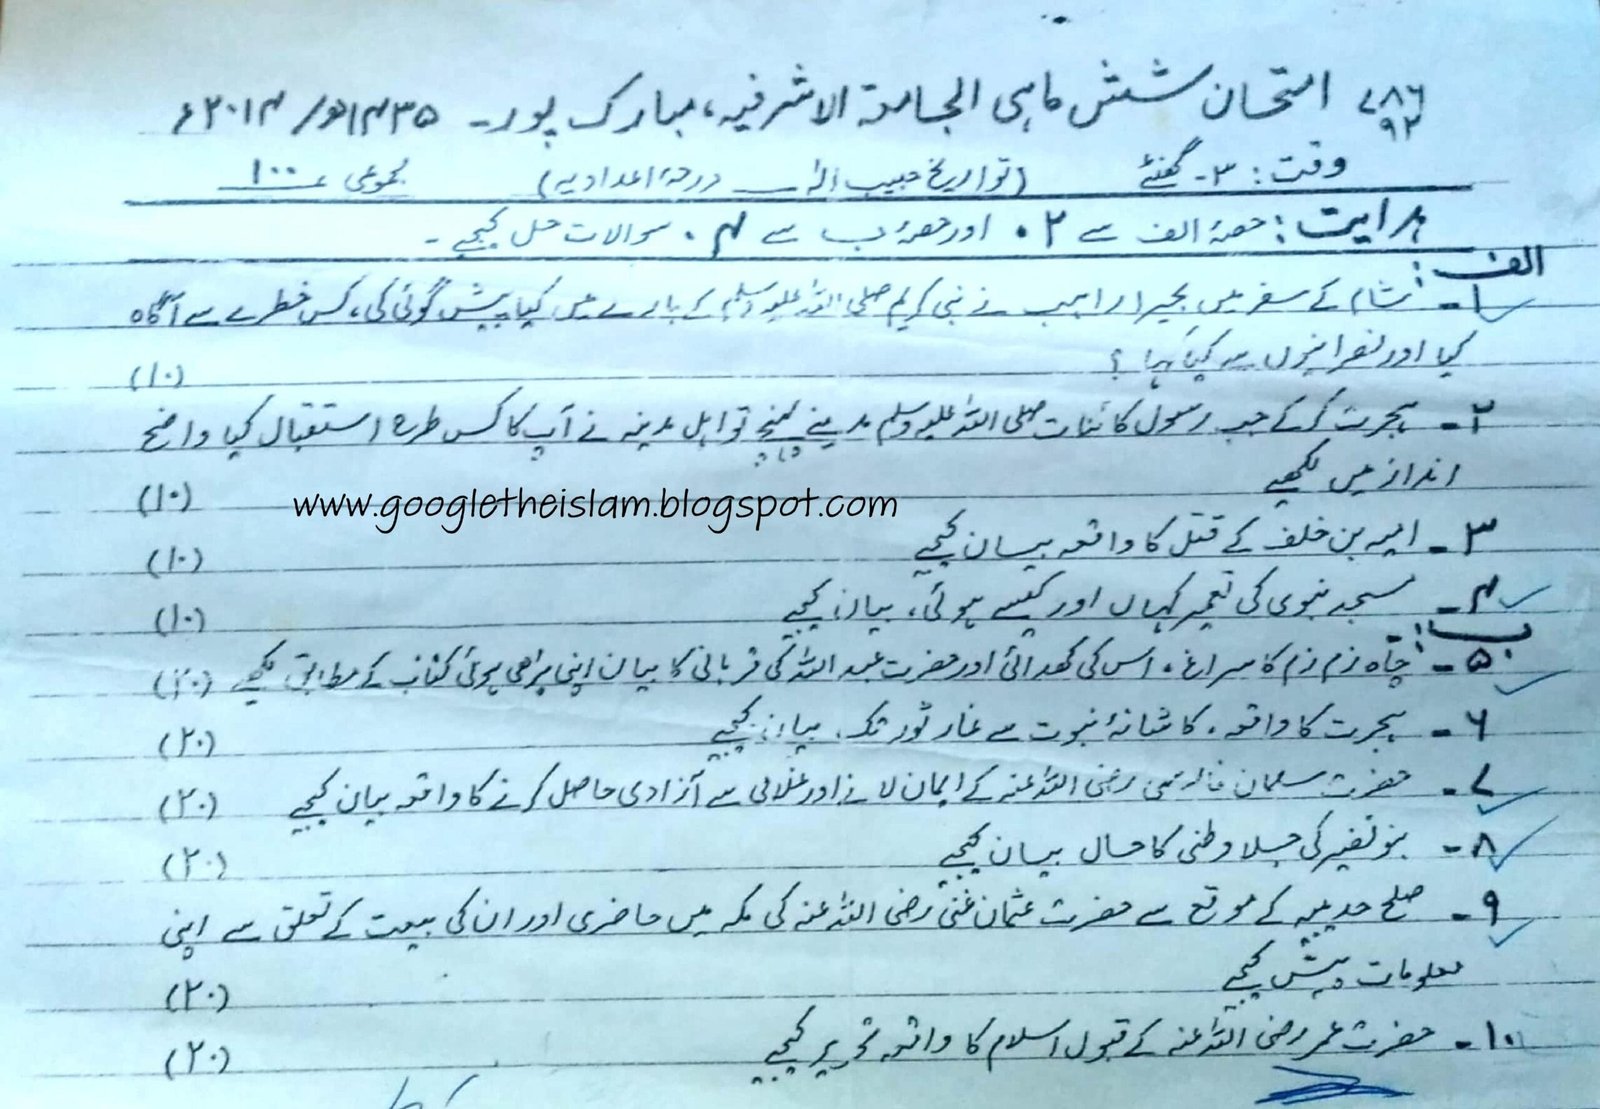 ۷۸۶
۹۲
امتحان شش ماہی الجامعۃ الاشرفیہ، مبارک پور۔ ۱۴۳۵ھ/ ۲۰۱۴ء
وقت: ۳۔ گھنٹے (تواریخ حبیب الٰہ درجۂ اعدادیہ) مجموعی ۱۰۰
ہدایت: حصۂ الف سے ۲۔ اور حصۂ ب سے ۴۔ سوالات حل کیجیے۔
الف:
۱۔ شام کے سفر میں بحیرا راہب نے نبی کریم صلی اللہ علیہ وسلم کے بارے میں کیا پیشن گوئی کی، کس خطرے سے آگاہ
کیا اور نصرانیوں سے کیا کہا؟ (۱۰)
۲۔ ہجرت کرکے جب رسول کائنات صلی اللہ علیہ وسلم مدینے پہنچے تو اہل مدینہ نے آپ کا کس طرح استقبال کیا واضح
انداز میں لکھیے (۱۰)
www.googletheislam.blogspot.com
۳۔ امیہ بن خلف کے قتل کا واقعہ بیان کیجیے (۱۰)
۴۔ مسجد نبوی کی تعمیر کہاں اور کیسے ہوئی، بیان کیجیے (۱۰)
ب:
۵۔ چاہ زم زم کا سراغ، اس کی کھدائی اور حضرت عبد اللہ کی قربانی کا بیان اپنی پڑھی ہوئی کتاب کے مطابق لکھیے (۲۰)
۶۔ ہجرت کا واقعہ، کاشانۂ نبوت سے غار ثور تک، بیان کیجیے (۲۰)
۷۔ حضرت سلمان فارسی رضی اللہ عنہ کے ایمان لانے اور غلامی سے آزادی حاصل کرنے کا واقعہ بیان کیجیے (۲۰)
۸۔ بنو نضیر کی جلا وطنی کا حال بیان کیجیے (۲۰)
۹۔ صلح حدیبیہ کے موقع سے حضرت عثمان غنی رضی اللہ عنہ کی مکہ میں حاضری اور ان کی بیعت کے تعلق سے اپنی
معلومات پیش کیجیے (۲۰)
۱۰۔ حضرت عمر رضی اللہ عنہ کے قبول اسلام کا واقعہ تحریر کیجیے (۲۰)